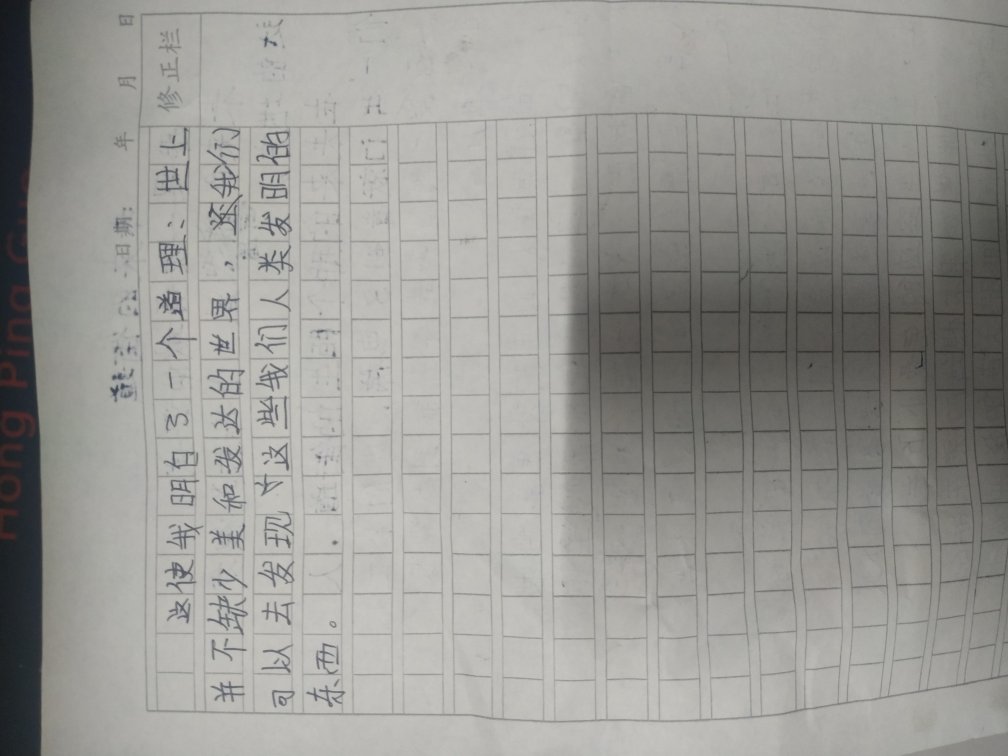 日期： 年 月 日
修正栏
这使我明白了一个道理、世上
并不缺少美和发达的世界，还我们
可以去发现 这些我们人类发明的
东西。
Hong Ping Guo